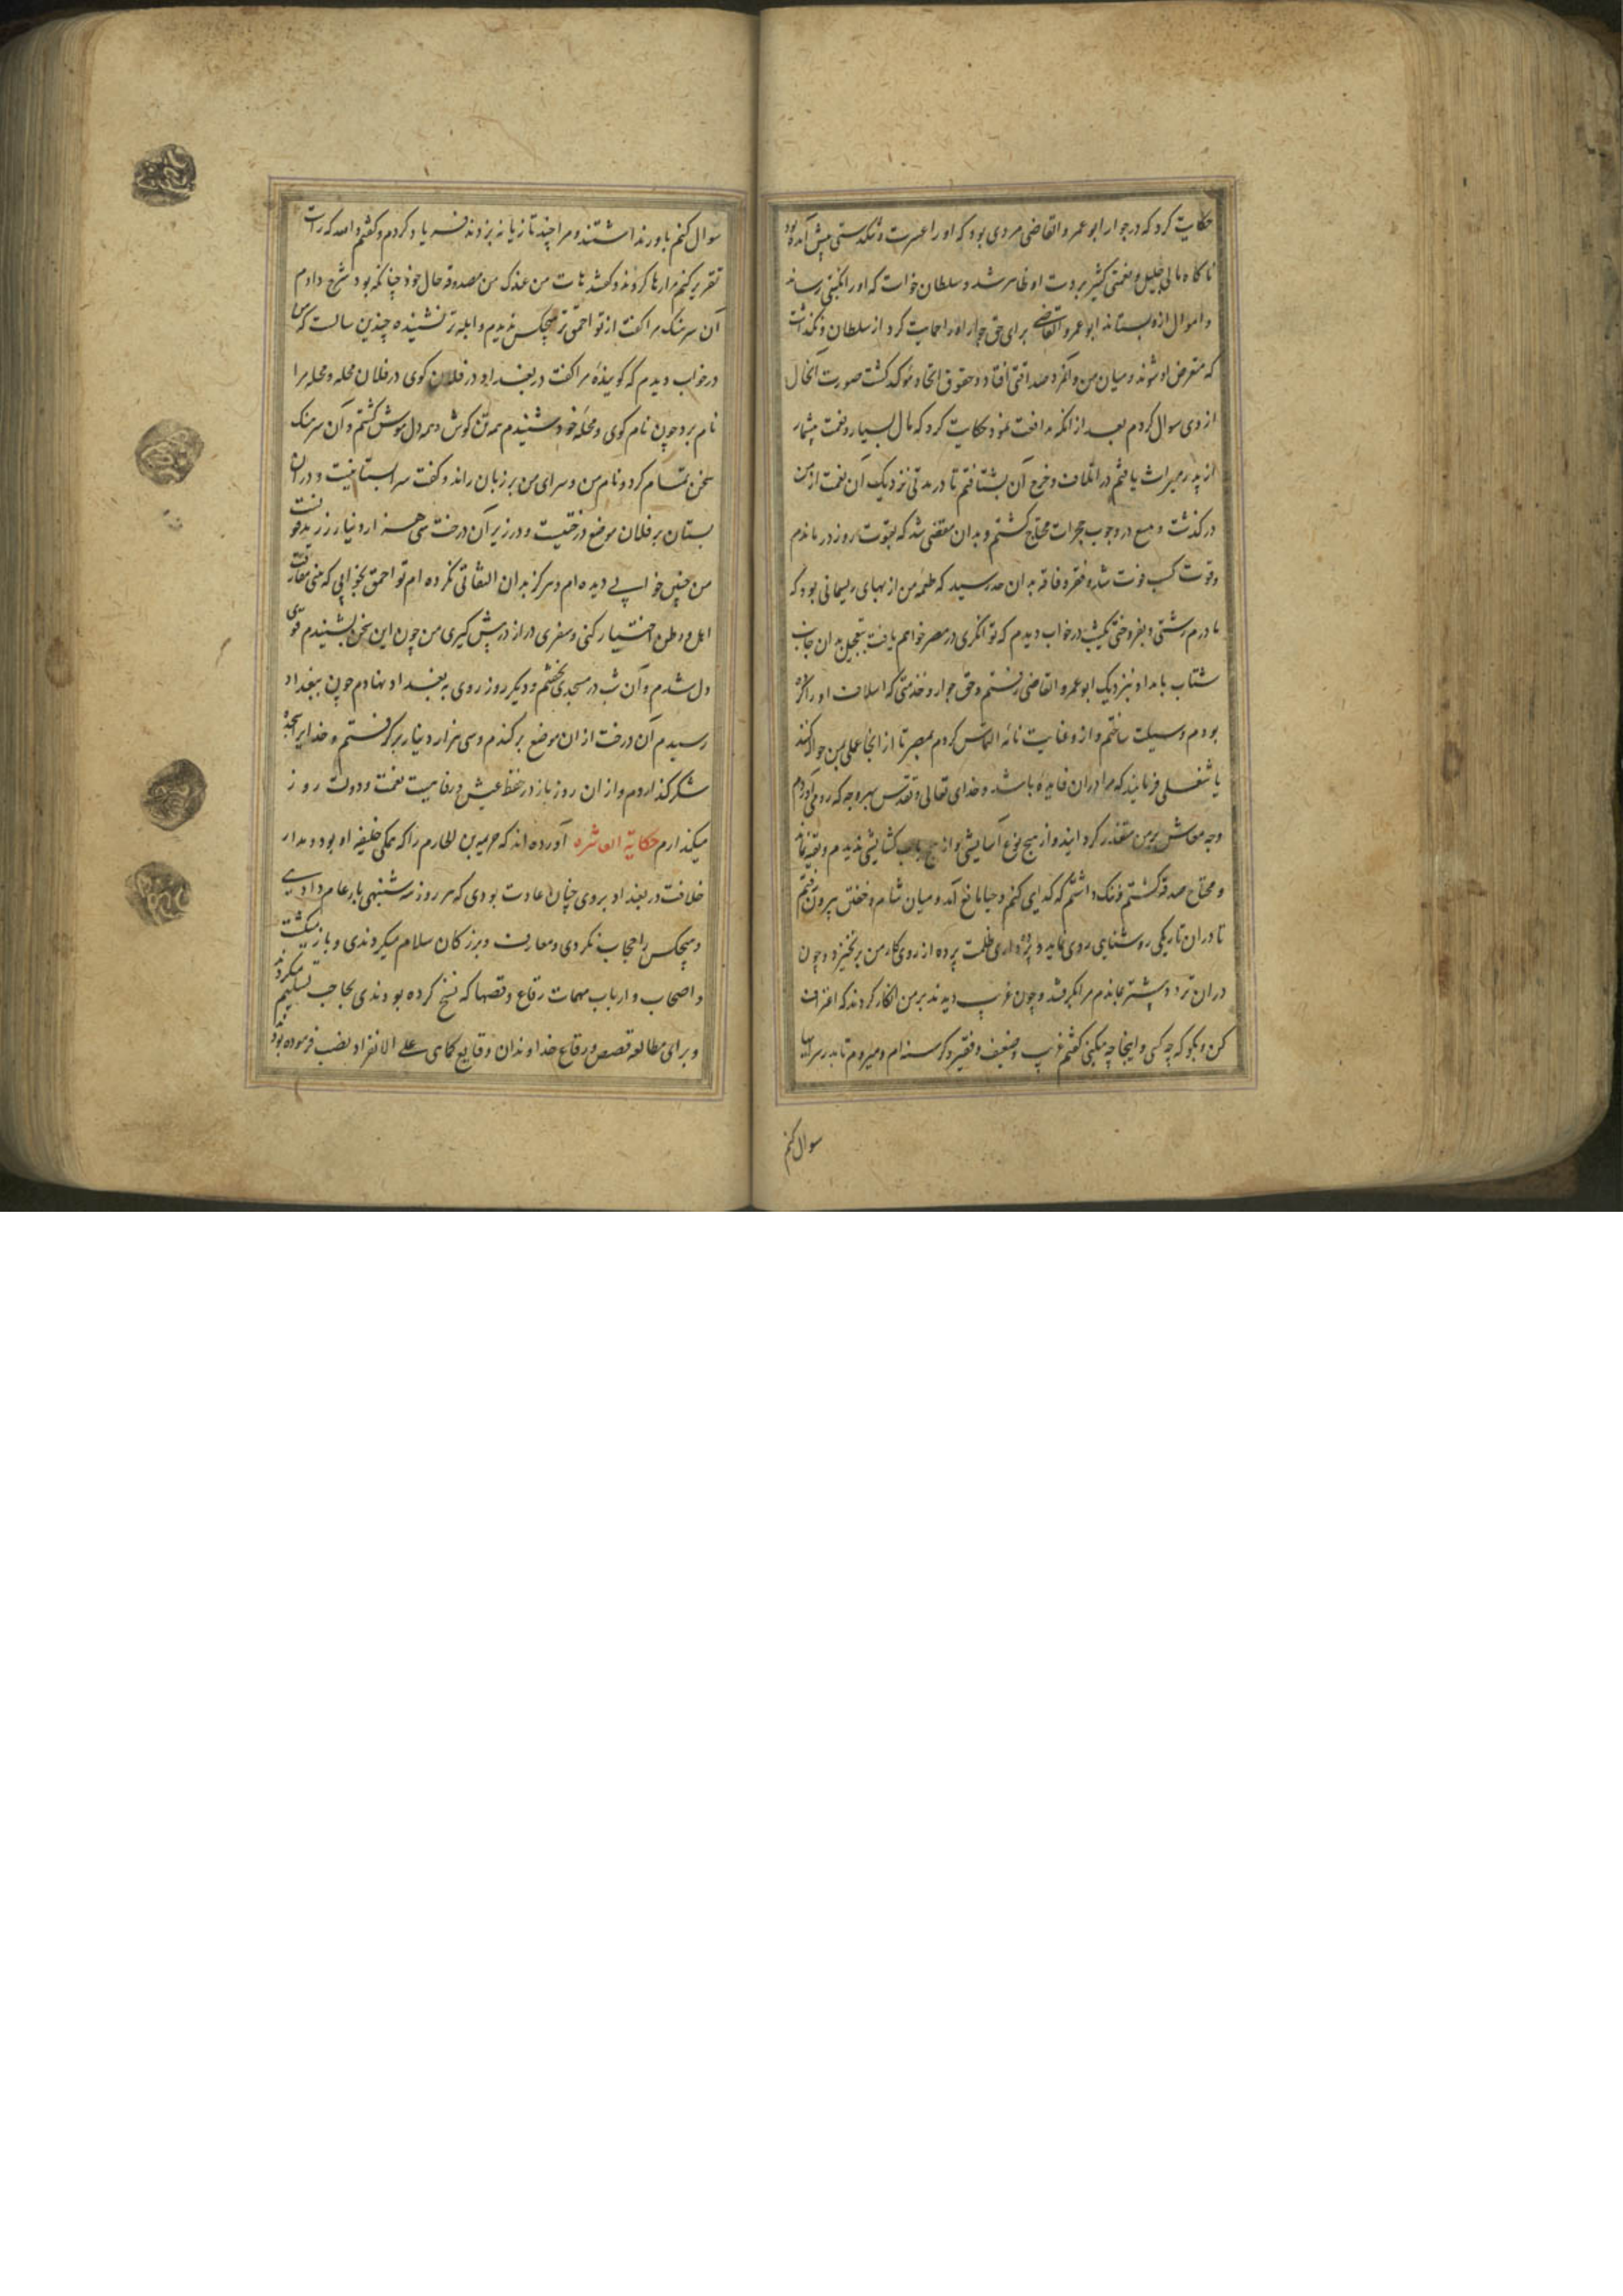 حکایت کرد که در جوار ابو عمرو القاضی مردی بود که او را عسرت و تنکدستی پیش آمده بود
ناکاه مالی جلیل و نعمتی کثیر بر دست او ظاهر شد و سلطان خواست که او را نکبتی رساند
و اموال ازو بستاند ابو عمرو القاضی برای حق جوار او را حمایت کرد از سلطان و نکذاشت
که متعرض او شوند و میان من و آنمرد صداقتی افتاد و حقوق اتحاد مؤکد کشت صورت آنحال
از وی سوال کردم بعد از انکه مدافعت نمود حکایت کرد که مال بسیار و نعمت بیشمار
از پدر میراث یافتم در اتلاف و خرج آن بشتافتم تا در مدتی نزدیک آن نعمت از من
در کذشت و ببیع در و چوب حجرات محتاج کشتم و بدان مفضی شد که بقوت روز در ماندم
و قوت کسب فوت شد و فقر و فاقه بدان حد رسید که طعمه من از بهای ریسمانی بود که
مادرم رشتی و بفروختی یکشب در خواب دیدم که توانکری در مصر خواهم یافت بتعجیل بدان جانب
شتاب بامداد بنزدیک ابو عمرو القاضی رفتم و حق جوار و خدمتی که اسلاف او را کرده
بودم وسیلت ساختم و از و عنایت نامه التماس کردم بمصر تا از انجا عملی بمن حواله کنند
یا شغلی فرمایند که مرا در ان فایده باشد و خدای تعالی و تقدس بهر وجه که روی آوردم
وجه معاش بر من متعذر کردانید و از هیچ نوع آسایشی و از هیچ باب کشایشی ندیدم و بقیه نماند
و محتاج صدقه کشتم و ننک داشتم که کدایی کنم و حیا مانع آمد و میان شام و خفتن بیرون رفتم
تا در ان تاریکی روشنایی روی نماید و پرده داری ظلمت پرده از روی کار من برنخیزد و چون
در ان تردد پیشتر بماندم مرا بکرفتند و چون غریب دیدند بر من انکار کردند که اعتراف
کن و بکو که چه کسی و اینجا چه میکنی کفتم غریب و ضعیف و فقیر و کرسنه ام و میروم تا بدر سرایها
سوال کنم
سوال کنم باور نداشتند و مرا چند تازیانه بزدند فریاد کردم و کفتم والله که راست
تقریر کنم مرا رها کردند و کفتند هات من عندک من صدوقه حال خود چنانکه بود شرح دادم
آن سرهنک مرا کفت از تو احمق تر هیچکس ندیدم و ابله تر نشنیده چندین سالست که من
در خواب دیدم که کویندهٔ مرا کفت در بغداد در فلان کوی در فلان محله و محله مرا
نام برد چون نام کوی و محله خود شنیدم همه تن کوش و همه دل هوش کشتم و آن سرهنک
سخن تمام کرد و نام من و سرای من بر زبان راند و کفت سرابستانیست و در ان
بستان بر فلان موضع درختیست و در زیر آن درخت سی هزار دینار زر مدفونست
من چنین خوابی دیده ام و هرکز بدان التفاتی نکرده ام تو احمق بخوابی که بینی مفارقت
اهل و وطن اختیار کنی و سفری دراز در پیش کیری من چون این سخن بشنیدم قوی
دل شدم و آن شب در مسجدی بخفتم و دیکر روز روی به بغداد نهادم چون ببغداد
رسیدم آن درخت از ان موضع برکندم و سی هزار دینار برکرفتم و خدایرا سجدهٔ
شکر کذاردم و از ان روز باز در خفظ عیش و رفاهیت نعمت و دولت روز
میکذارم حکایة العاشره آورده اند که حریمه بن الحازم را که یمکی خلیفه او بود و مدار
خلافت در بغداد بر وی چنان عادت بودی که هر روز سه شنبهی بار عام دادی
و هیچکس را حجاب نکردی و معارف و بزرکان سلام میکردندی و باز میکشت
و اصحاب و ارباب مهمات رقاع و قصها که نسخ کرده بودندی بحاجب تسلیم میکردند
و برای مطالعه قصص و رقاع خداوندان وقایع کمای علی الانفراد نصب فرموده بود